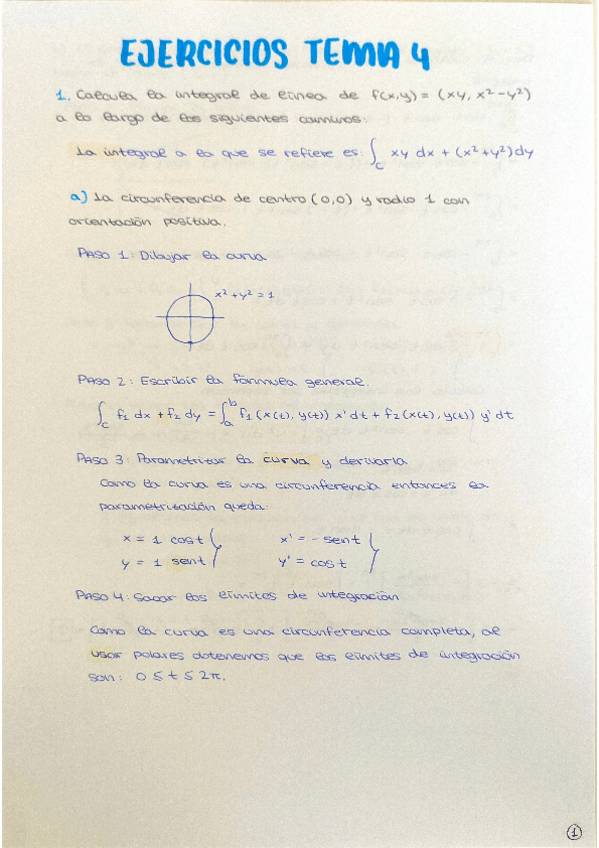 EJERCICIOS TEMA 4
1. Calcula la integral de línea de f(x,y) = (xy, x²-y²)
a lo largo de los siguientes caminos:
La integral a la que se refiere es: ∫_C xy dx + (x²+y²)dy
a) La circunferencia de centro (0,0) y radio 1 con
orientación positiva.
PASO 1: Dibujar la curva
x²+y²=1
PASO 2: Escribir la fórmula general.
∫_C f₁ dx + f₂ dy = ∫_a^b f₁(x(t), y(t)) x' dt + f₂(x(t), y(t)) y' dt
PASO 3: Parametrizar la curva y derivarla
Como la curva es una circunferencia entonces la
parametrización queda:
x = 1 cost } x' = - sent }
y = 1 sent } y' = cost }
PASO 4: Sacar los límites de integración
Como la curva es una circunferencia completa, al
usar polares obtenemos que los límites de integración
son: 0 ≤ t ≤ 2π.
1